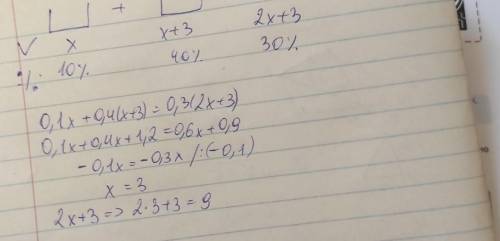 +
V x x+3 2x+3
%: 10% 40% 30%
0,1x+0,4(x+3)=0,3(2x+3)
0,1x+0,4x+1,2=0,6x+0,9
-0,1x=-0,3x /:(-0,1)
x=3
2x+3=>2·3+3=9